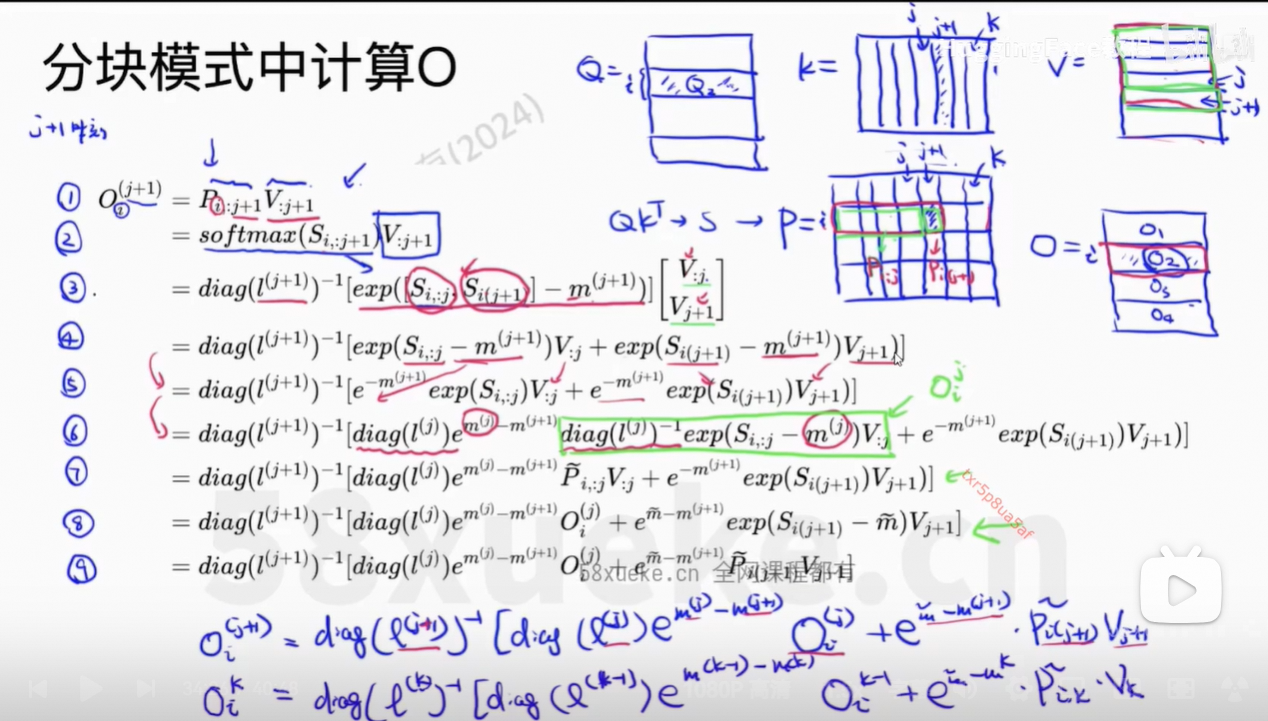 分块模式中计算O
Q=
i
Q₂
k=
j
j+1
k
V=
j
j+1
j+1时刻
(2024)
① O_i^{(j+1)} = P_{i:j+1}V_{:j+1}
② = softmax(S_{i,:j+1})V_{:j+1}
QK^T → S → P=
i
j
j+1
k
P_{i:j}
P_{i(j+1)}
O=
i
O₁
O₂
O₃
O₄
③ = diag(l^{(j+1)})^{-1}[exp([S_{i,:j}, S_{i(j+1)}] − m^{(j+1)})] [V_{:j}; V_{j+1}]
④ = diag(l^{(j+1)})^{-1}[exp(S_{i,:j} − m^{(j+1)})V_{:j} + exp(S_{i(j+1)} − m^{(j+1)})V_{j+1})]
⑤ = diag(l^{(j+1)})^{-1}[e^{−m^{(j+1)}}exp(S_{i,:j})V_{:j} + e^{−m^{(j+1)}}exp(S_{i(j+1)})V_{j+1})]
O_i^j
⑥ = diag(l^{(j+1)})^{-1}[diag(l^{(j)})e^{m^{(j)}−m^{(j+1)}}diag(l^{(j)})^{-1}exp(S_{i,:j} − m^{(j)})V_{:j} + e^{−m^{(j+1)}}exp(S_{i(j+1)})V_{j+1})]
⑦ = diag(l^{(j+1)})^{-1}[diag(l^{(j)})e^{m^{(j)}−m^{(j+1)}}P̃_{i,:j}V_{:j} + e^{−m^{(j+1)}}exp(S_{i(j+1)})V_{j+1})]
txr5p8ua3af
⑧ = diag(l^{(j+1)})^{-1}[diag(l^{(j)})e^{m^{(j)}−m^{(j+1)}}O_i^{(j)} + e^{m̃−m^{(j+1)}}exp(S_{i(j+1)} − m̃)V_{j+1}]
⑨ = diag(l^{(j+1)})^{-1}[diag(l^{(j)})e^{m^{(j)}−m^{(j+1)}}O_i^{(j)} + e^{m̃−m^{(j+1)}}P̃_{i(j+1)}V_{j+1}]
58xueke.cn
58xueke.cn 全网课程都有
O_i^{(j+1)} = diag(l^{(j+1)})^{-1}[diag(l^{(j)})e^{m^{(j)}−m^{(j+1)}} O_i^{(j)} + e^{m̃−m^{(j+1)}}·P̃_{i(j+1)}V_{j+1}
O_i^k = diag(l^{(k)})^{-1}[diag(l^{(k−1)})e^{m^{(k−1)}−m^{(k)}} O_i^{k−1} + e^{m̃−m^k} P̃_{i,k}·V_k
1080P 高清